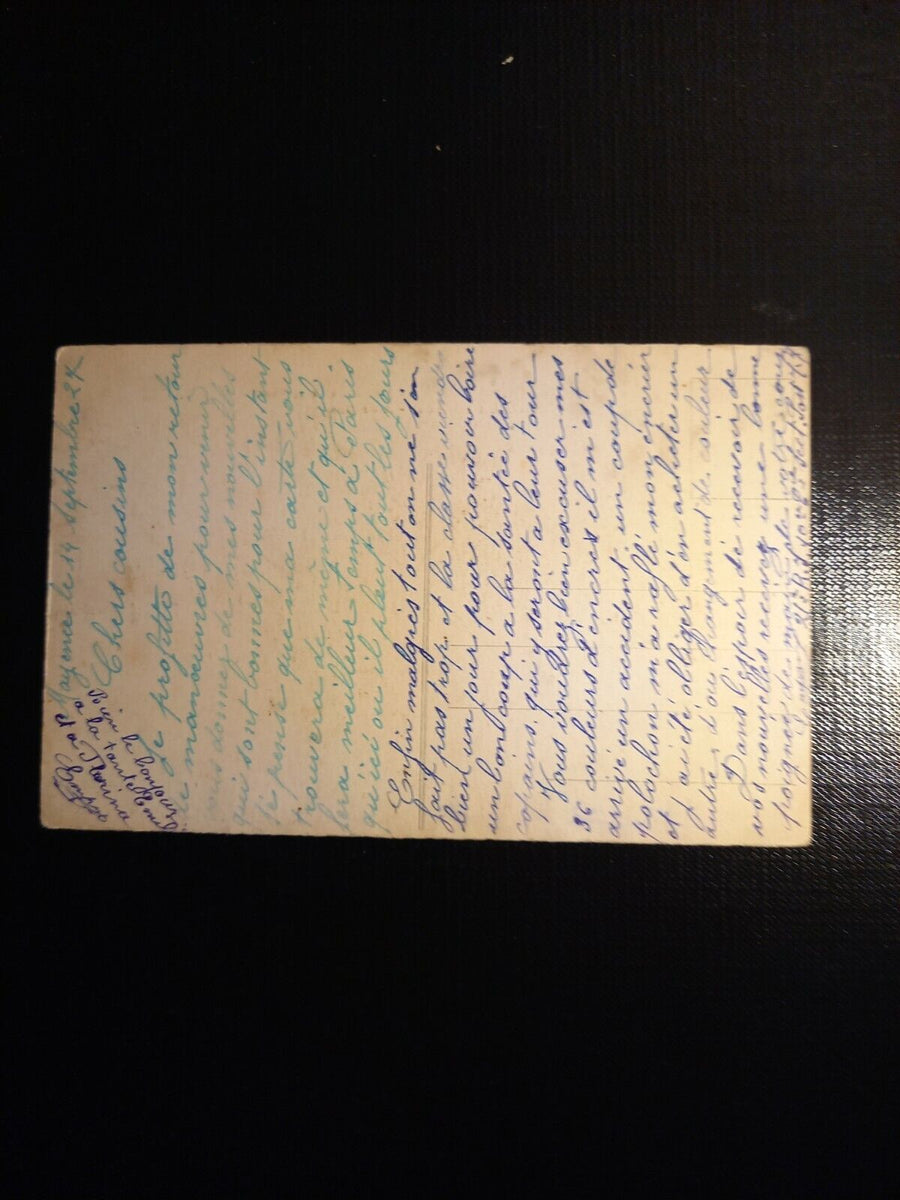 Mayence le 14 Septembre 24
Chers cousins
Je profitte de mon retour
de manoeuvres pour venir
vous donner de mes nouvelles
qui sont bonnes pour l'instant
je pense que ma carte vous
trouvera de même et qu'il
fera meilleur temps à Paris
qu'ici ou il pleut tout les jours
Enfin malgrés tout on ne s'en
fait pas trop et la classe viendra
bien un jour pour pouvoir boire
un bon coup a la santée des
copains qui y seront a leur tour
Vous voudrez bien excuser mes
36 couleurs d'encres il m'est
arrivé un accident un coup de
polochon m'a raflé mon encrier
et j'ai été obliger d'en acheter un
autre d'ou changement de couleur
Dans l'espoir de recevoir de
vos nouvelles recevez une bonne
poignée de main
bonjour